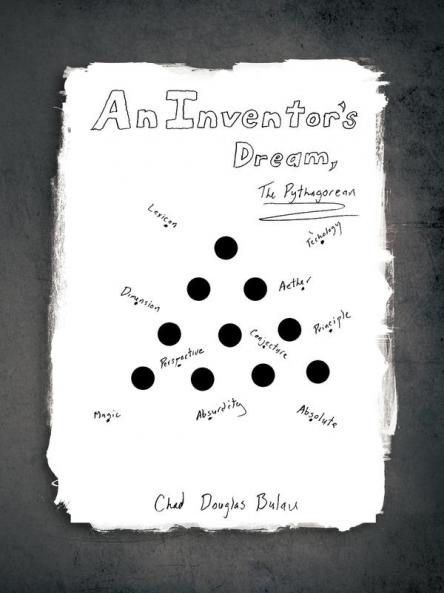 An Inventor's
Dream,
The Pythagorean
Lexicon
Techology
Dimension
Aether
Principle
Conjecture
Perspective
Magic
Absurdity
Absolute
Chad Douglas Bulau